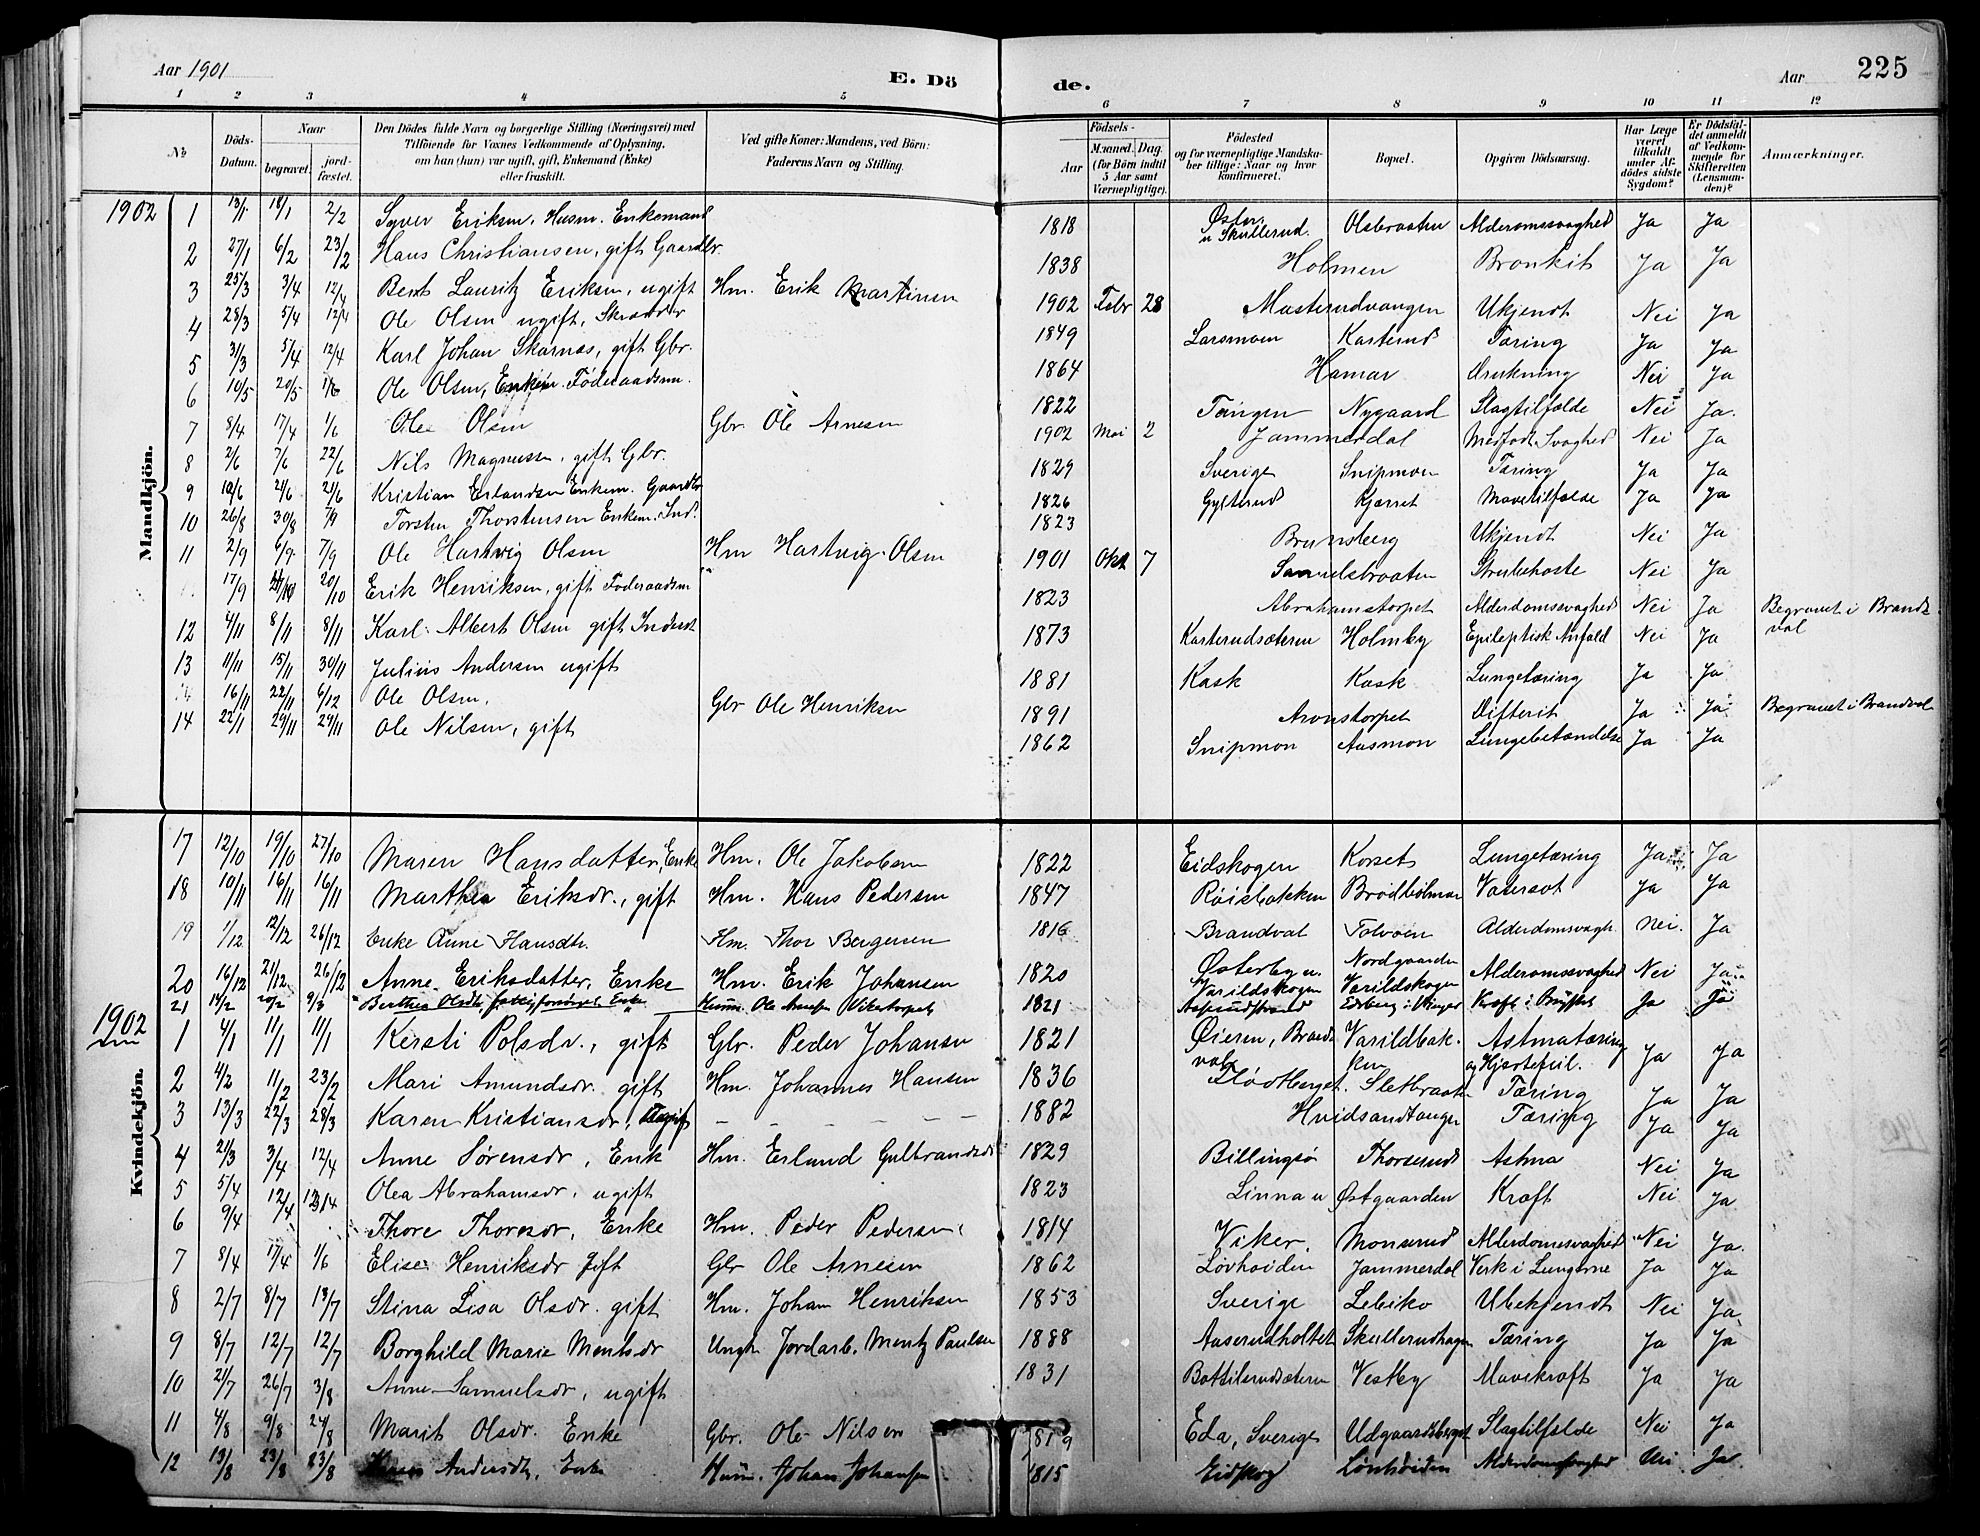 Aar 1901 E. Dö de. Aar 225
1 2 3 4 5 6 7 8 9 10 11 12
No Döds-Datum. Naar begravet. jord-fæstet. Den Dödes fulde Navn og borgerlige Stilling (Næringsvei) med Tilföiende for Voxnes Vedkommende af Oplysning, om han (hun) var ugift, gift, Enkemand (Enke) eller fraskilt. Ved gifte Koner: Mandens, ved Börn: Faderens Navn og Stilling. Födsels- Aar Maaned. Dag. (for Börn indtil 5 Aar samt Værnepligtige). Födested og for værnepligtige Mandska-ber tillige: Naar og hvor konfirmeret. Bopæl. Opgiven Dödsaarsag. Har Læge været tilkaldt under Af-dödes sidste Sygdom? Er Dödsfal-det anmeldt af Vedkom-mende for Skifteretten (Lensman-den)? Anmærkninger.
Mandkjön.
1902 1 13/1 18/1 2/2 Syver Eriksen, Husm. Enkemand 1818 Öster u Skullerud. Olsbraaten Alderomssvaghed Ja Ja
2 27/1 6/2 23/2 Hans Christiansen, gift Gaardbr. 1838 Holmen Bronkit Ja Ja
3 25/3 3/4 12/4 Bent Lauritz Eriksen, ugift Hm. Erik Martinsen 1902 Febr 28 Masterudvangen Ukjendt Nei Ja
4 25/3 5/4 12/4 Ole Olsen ugift, Skrædder 1849 Larsmoen Kasterud Tæring Ja Ja
5 31/3 5/4 12/4 Karl Johan Skarnæs, gift Gbr. 1864 Hamar Drukning Nei Ja
6 10/5 20/5 1/6 Ole Olsen, Enkem. Föderaadsm. 1822 Tangen Nygaard Slagtilfælde Nei Ja.
7 8/4 17/4 1/6 Ole Olsen Gbr. Ole Arnesen 1902 Mai 2 Jammerdal Medfödt Svaghed Nei Ja
8 2/6 7/6 22/6 Nils Magnussen, gift Gbr. 1829 Sverige Snipmoen Tæring Ja Ja
9 10/6 21/6 21/6 Kristian Erlandsen Enkem. Gaardbr 1826 Gylterud Kjærret Mavetilfælde Ja Ja
10 26/8 30/8 7/9 Torsten Thorstensen Enkem. Ind. 1823 Brunsberg Ukjendt Nei Ja
11 2/9 6/9 7/9 Ole Hartvig Olsen Hm Hartvig Olsen 1901 Okt 7 Samuelsbraaten Strubehoste Nei Ja
17/9 20/10 Erik Henriksen, gift Föderaadsm 1823 Abrahamstorpet Alderdomssvaghed Nei Ja Begravet i Brandval
12 4/11 8/11 8/11 Karl Albert Olsen gift Inderst 1873 Kasterudsæteren Holmby Epileptisk Anfald Nei Ja
13 11/11 15/11 30/11 Julius Andersen ugift 1881 Kask Kask Lungetæring Ja Ja
16/11 22/11 6/12 Ole Olsen. Gbr Ole Henriksen 1891 Aronstorpet Difterit Ja Ja Begravet i Brandval
14 22/11 29/11 29/11 Ole Nilsen, gift 1862 Snipmon Aasmon Lungebetændelse Ja Ja
Kvindekjön.
17 12/10 19/10 27/10 Maren Hansdatter, Enke Hm. Ole Jakobsen 1822 Eidskogen Korset Lungetæring Ja Ja
18 10/11 16/11 16/11 Marthea Eriksdr., gift Hm. Hans Pedersen 1847 Röisbakken Brödbölmoen Vatersot Ja Ja
19 1/12 12/12 26/12 Enke Anne Hansdtr. Hm. Thor Bergersen 1816 Brandval Tolvöen Alderdomssvagh. Nei. Ja
20 16/12 21/12 26/12 Anne Eriksdatter, Enke Hm. Erik Johansen 1820 Österby u. Varildskogen Nordgaarden Varildskogen Alderomssvaghed Nei Ja
21 14/2 20/2 9/3 Berthea Olsdtr. Enke Husm. Ole Hansen Vikertorpet 1821 Edsberg i Vinger Kræft i Brystet Ja Ja
1902
1 4/1 11/1 11/1 Kersti Polsdr., gift Gbr. Peder Johansen 1821 Öieren, Brandval Varildbakken Astmatæring og Hjertefeil. Ja Ja
2 4/2 11/2 23/2 Mari Amundsdr. gift Hm. Johannes Hansen 1836 Slöstberget. Sletbraaten Tæring Ja Ja
3 13/3 22/3 28/3 Karen Kristiansdr, Ugift – – – – – 1882 Hvidsandtangen Tæring Ja Ja
4 21/3 3/4 12/4 Anne Sörensdr, Enk Hm. Erland Gulbrandsd 1829 Billingsö Thorserud Astma Nei Ja
5 5/4 12/4 Olea Abrahamsdr, ugift 1823 Linna u Östgaarden Kræft Nei Ja
6 9/4 Thore Thoresdr, Enke Hm. Peder Pedersen 1814 Viker. Monserud Alderdomssvaghed Nei Ja.
7 8/4 17/4 1/6 Elise Henriksdr Gift Gbr Ole Arnesen 1862 Lövhöiden Jammerdal Verk i Lungerne Ja Ja
8 2/7 8/7 13/7 Stina Lisa Olsdr. gift Hm. Johan Henriksen 1853 Sverige Lebiko Ubekjendt Nei Ja
9 8/7 12/7 12/7 Borghild Marie Mentsdr Ungk Jordarb. Mentz Paulsen 1888 Aaserudholtet Skullerudhagen Tæring Ja Ja
10 21/7 26/7 3/8 Anne Samuelsdr, ugift 1831 Bottilerudsæteren Vestby Mavekræft Ja Ja
11 4/8 9/8 24/8 Marit Olsdr. Enke Gbr. Ole Nilsen 1819 Eda, Sverige Udgaardsberget Slagtilfælde Nei Ja
12 13/8 23/8 23/8 Andersdtr, Enke Husm. Johan Johansen 1815 Eidskog Lönhöiden Alderdomssvaghed Nei Ja.